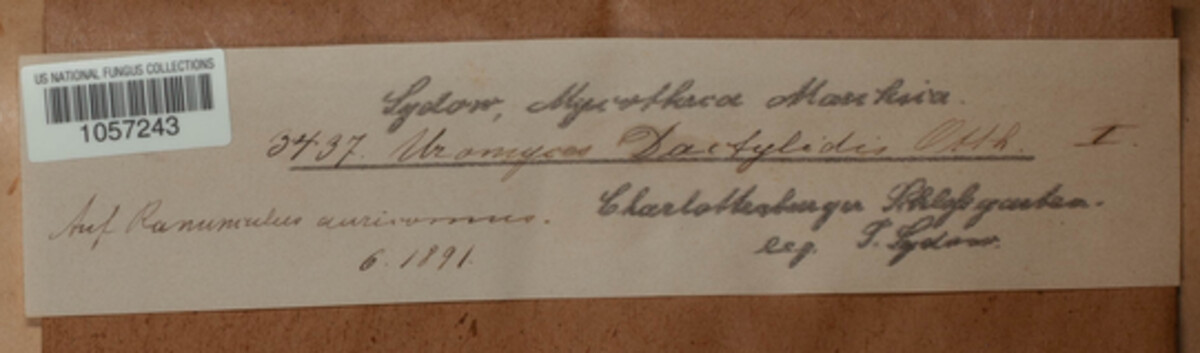 US NATIONAL FUNGUS COLLECTIONS
1057243
Sydow, Mycotheca Marchica.
3437. Uromyces Dactylidis Otth. I.
Auf Ranunculus auricomus.
6. 1891.
Charlottenburger Schloßgarten.
leg. P. Sydow.